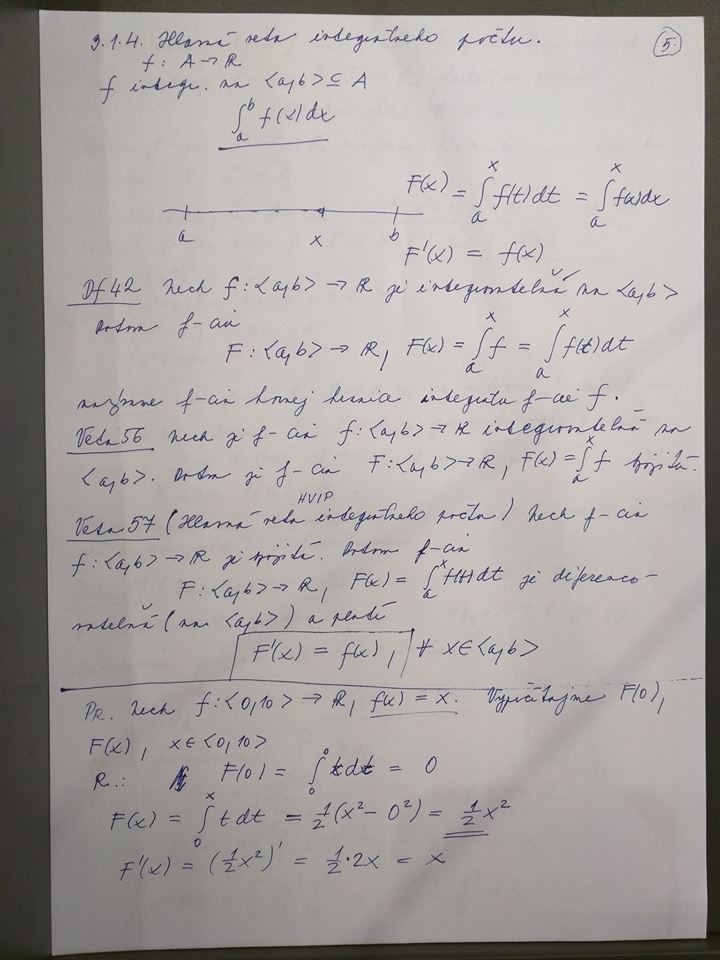 9.1.4. Hlavná veta integrálneho počtu. 5.
f: A → R
f integr. na <a,b> ⊆ A
∫_a^b f(x)dx
F(x) = ∫_a^x f(t)dt = ∫_a^x f(x)dx
a x b
F'(x) = f(x)
Df 42 Nech f: <a,b> → R je integrovateľná na <a,b>
Potom f-cia
F: <a,b> → R, F(x) = ∫_a^x f = ∫_a^x f(t)dt
nazývame f-cia hornej hranice integrálu f-cie f.
Veta 56 Nech je f-cia f: <a,b> → R integrovateľná na
<a,b>. Potom je f-cia F: <a,b> → R, F(x) = ∫_a^x f spojitá.
HVIP
Veta 57 (Hlavná veta integrálneho počtu) Nech f-cia
f: <a,b> → R je spojitá. Potom f-cia
F: <a,b> → R, F(x) = ∫_a^x f(t)dt je diferenco-
vateľná (na <a,b>) a platí
F'(x) = f(x), ∀ x∈<a,b>
PR. Nech f: <0,10> → R, f(x) = x. Vypočítajme F(0),
F(x), x∈<0,10>
R.: F(0) = ∫_0^0 t dt = 0
F(x) = ∫_0^x t dt = 1/2(x² - 0²) = 1/2 x²
F'(x) = (1/2 x²)' = 1/2·2x = x